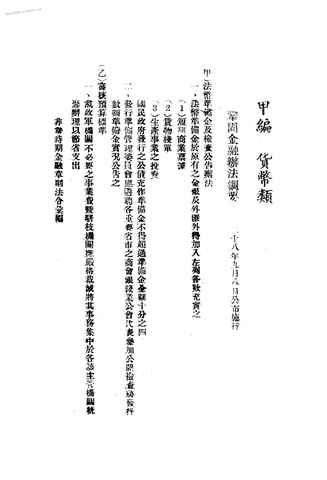 甲編　貨幣類
鞏固金融辦法綱要
二十八年九月八日公布施行
甲）法幣準備金及檢查公告辦法
一、法幣準備金於原有之金銀及外匯外得加入左列各款充實之
（1）短期商業票據
（2）貨物棧單
（3）生產事業之投資
國民政府發行之公債充作準備金不得超過準備金全額十分之四
二、發行準備管理委員會應邀請各重要省市之商會銀錢業公會代表參加公開檢查將發行
數額準備金實況公告之
（乙）審核預算標準
一、黨政軍機關不必要之事業費暨駢枝機關應嚴格裁減將其事務集中於各該主管機關統
籌辦理以節省支出
非常時期金融章則法令彙編